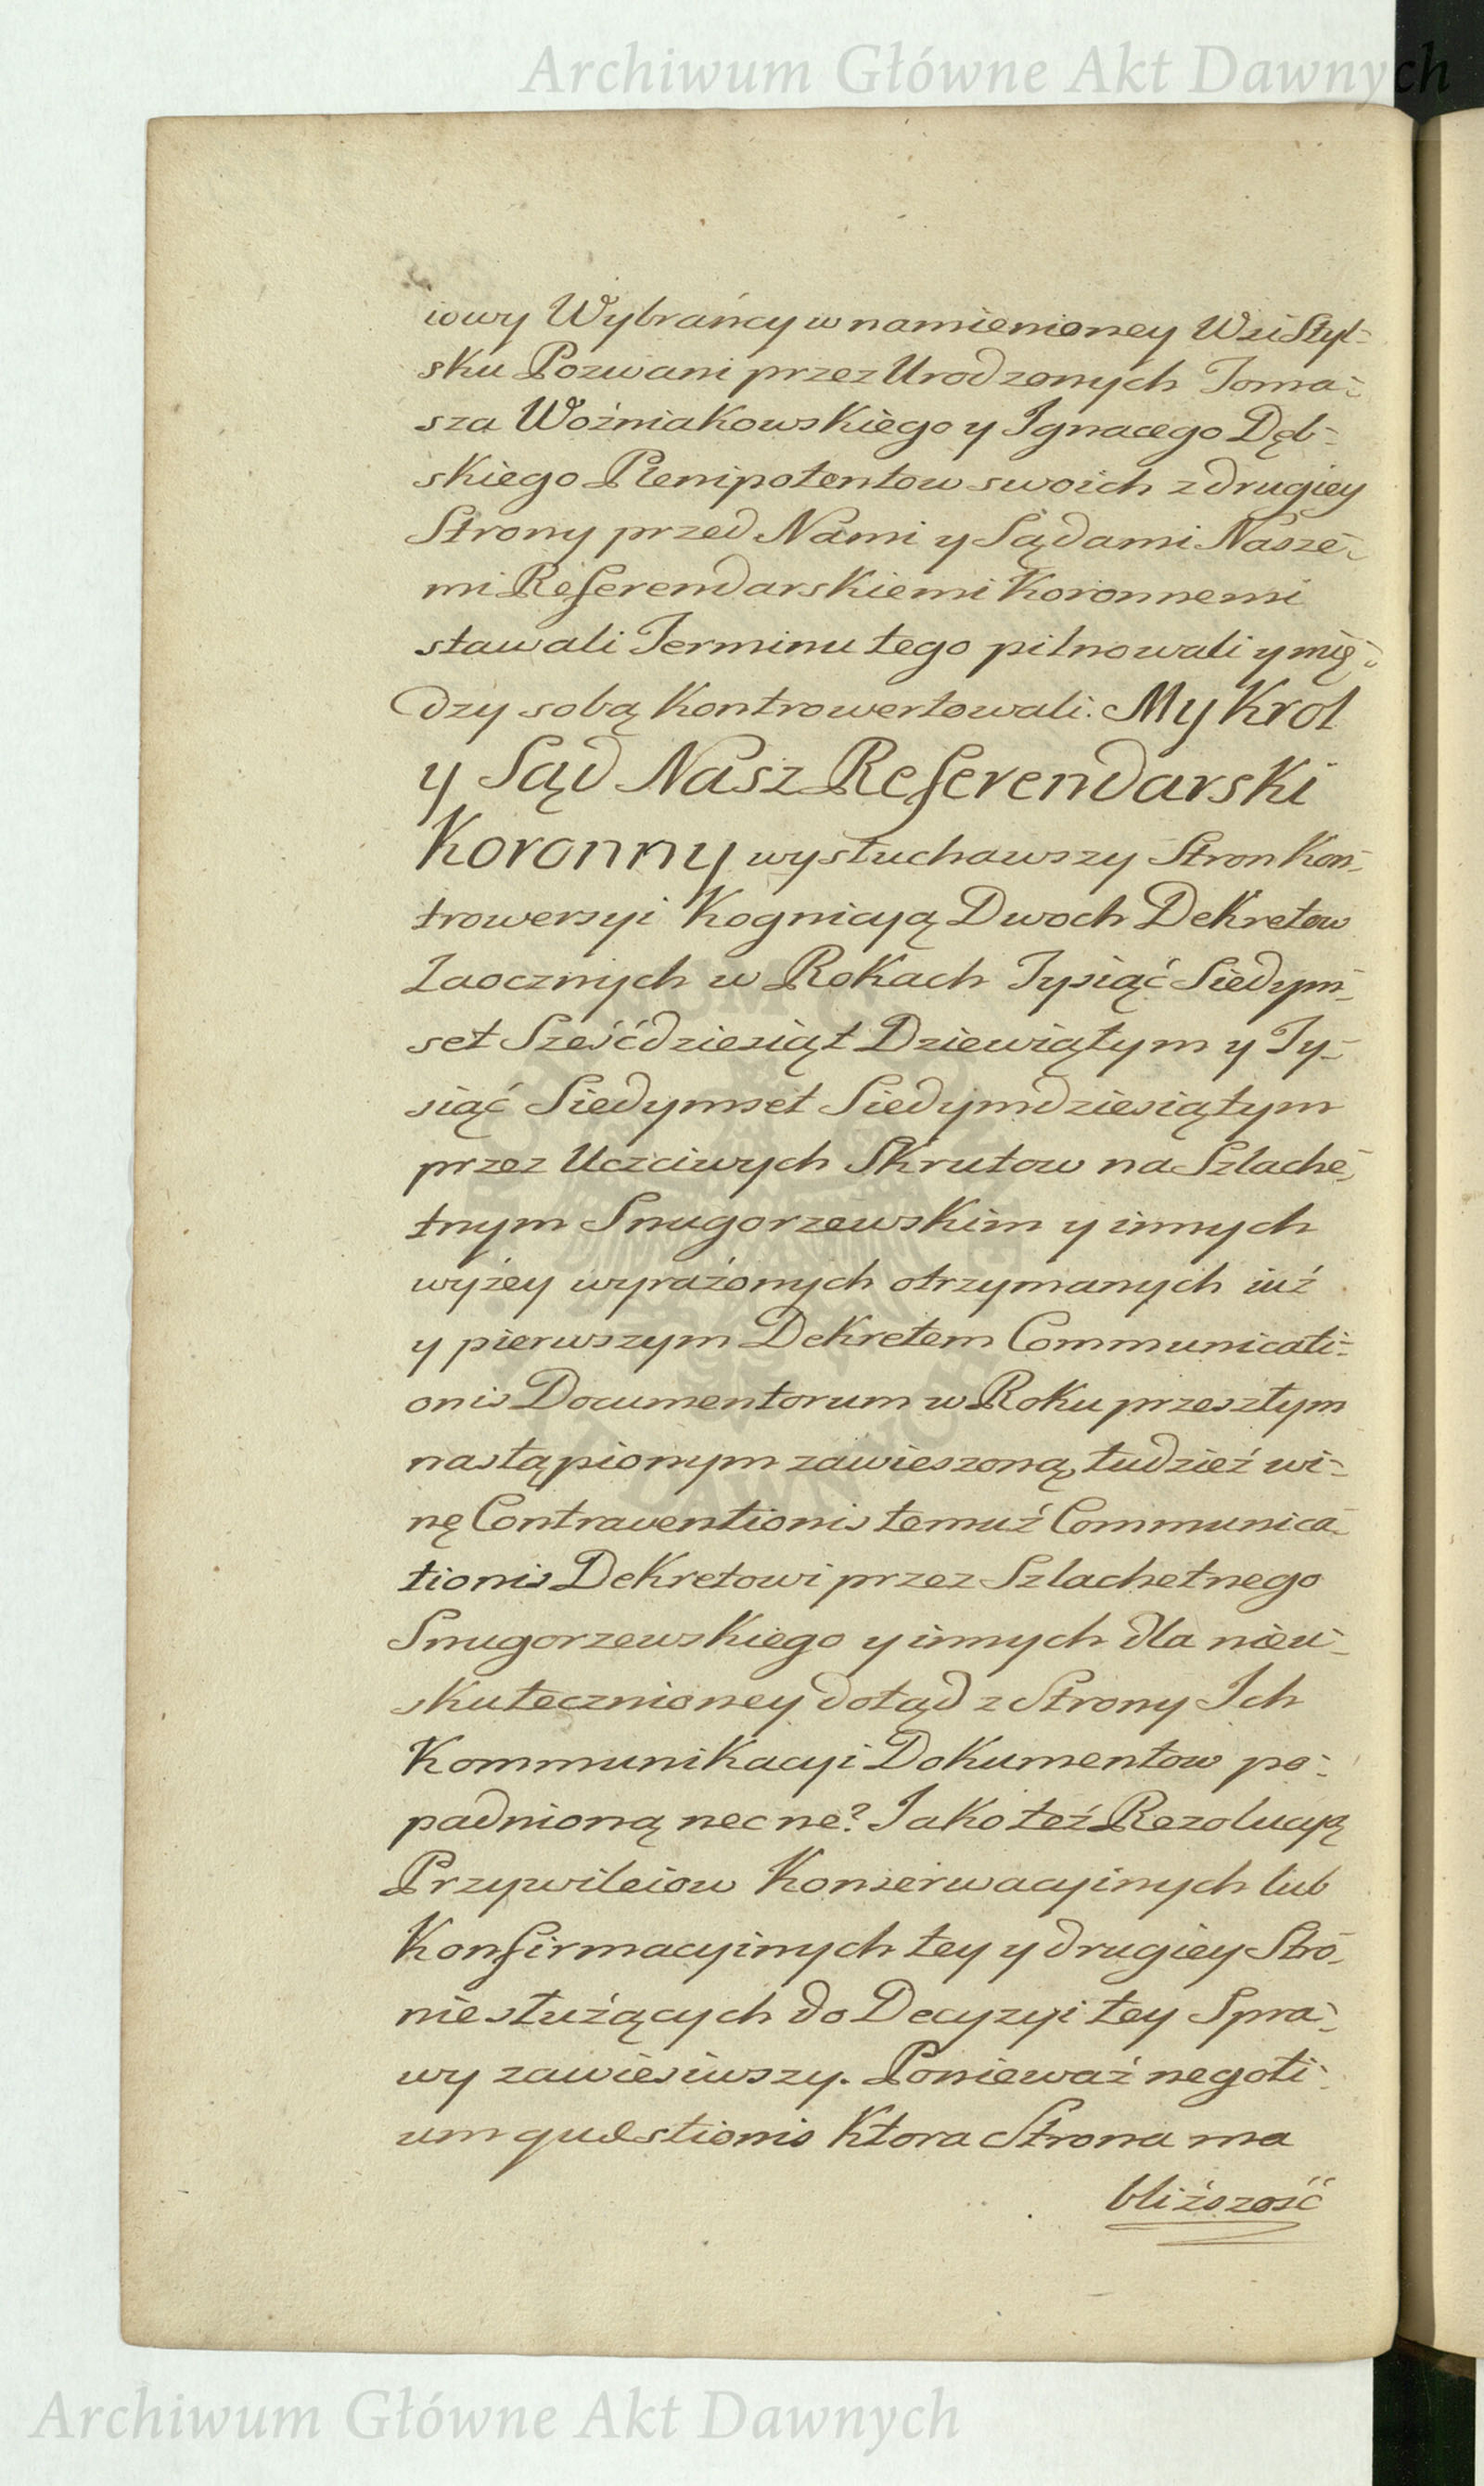 Archiwum Główne Akt Dawnych
iowy Wybrańcy w namienioney Wsi Styl-
sku Pozwani przez Urodzonych Toma-
sza Woźniakowskiego y Ignacego Dęb-
skiego Plenipotentow swoich z drugiey
Strony przed Nami y Sądami Nasze-
mi Referendarskiemi Koronnemi
stawali Terminu tego pilnowali y mię-
dzy sobą Kontrowertowali. My Krol
y Sąd Nasz Referendarski
Koronny wysłuchawszy Stron Kon-
trowersyi Kognicyą Dwoch Dekretow
Zaocznych w Rokach Tysiąć Siedym-
set Sześćdziesiąt Dziewiątym y Ty-
siąć Siedymset Siedymdziesiątym
przez Uczciwych Skrutow na Szlache-
tnym Smugorzewskim y innych
wyżey wyrażonych otrzymanych iuż
y pierwszym Dekretem Communicati-
onis Documentorum w Roku przeszłym
nastąpionym zawieszoną, tudzież wi-
nę Contraventionis temuż Communica-
tionis Dekretowi przez Szlachetnego
Smugorzewskiego y innych dla nieu-
skutecznioney dotąd z Strony Ich
Kommunikacyi Dokumentow po-
padnioną nec ne? Jako też Rezolucyą
Przywileiow Konserwacyinych lub
Konfirmacyinych tey y drugiey Stro-
nie służących do Decyzyi tey Spra-
wy zawiesiwszy. Ponieważ negoti-
um quæstionis Ktora Strona ma
bliższość
Archiwum Główne Akt Dawnych